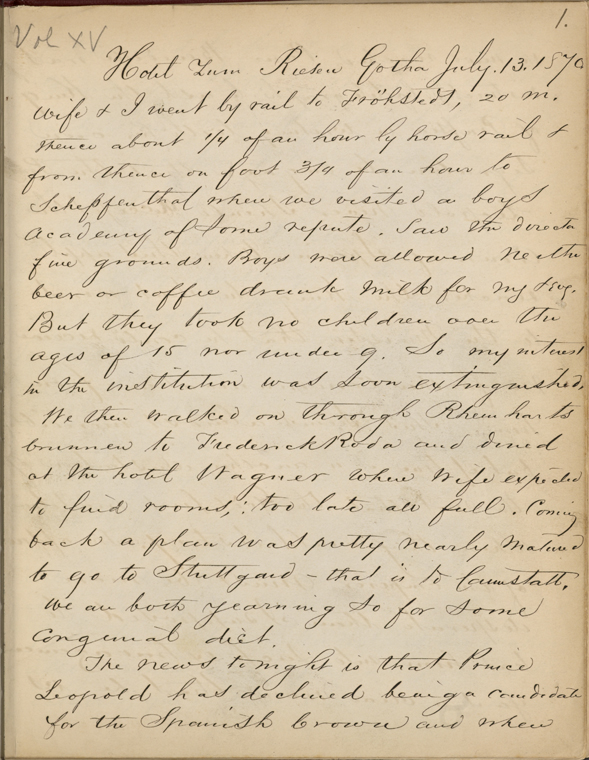 Vol XV
1.
Hotel Zum Riesen Gotha July. 13. 1870
Wife & I went by rail to Fröhstedt, 20 m.
thence about 1/4 of an hour by horse rail &
from thence on foot 3/4 of an hour to
Schepfenthal where we visited a boys
Academy of some repute. Saw the director
fine grounds. Boys were allowed neither
beer or coffee drank milk for mg & evg.
But they took no children over the
ages of 15 nor under 9. So my interest
in the institution was soon extinguished.
We then walked on through Rheinharts
brunnen to FrederickRoda and dined
at the hotel Wagner where wife expected
to find rooms, : too late all full. Coming
back a plan was pretty nearly matured
to go to Stuttgard – that is to Cannstatt.
We are both yearning so for some
congenial diet.
The news tonight is that Prince
Leopold has declined being a candidate
for the Spanish Crown and when